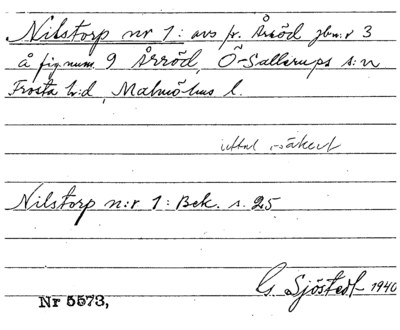 Nilstorp nr 1: avs fr. Årröd jbnr 3
å fig.num. 9 Årröd, Ö-Sallerups s:n
Frosta h:d, Malmöhus l.
uttal osäkert
Nilstorp n:r 1: Bek. s. 25
G. Sjöstedt 1940
Nr 5573,